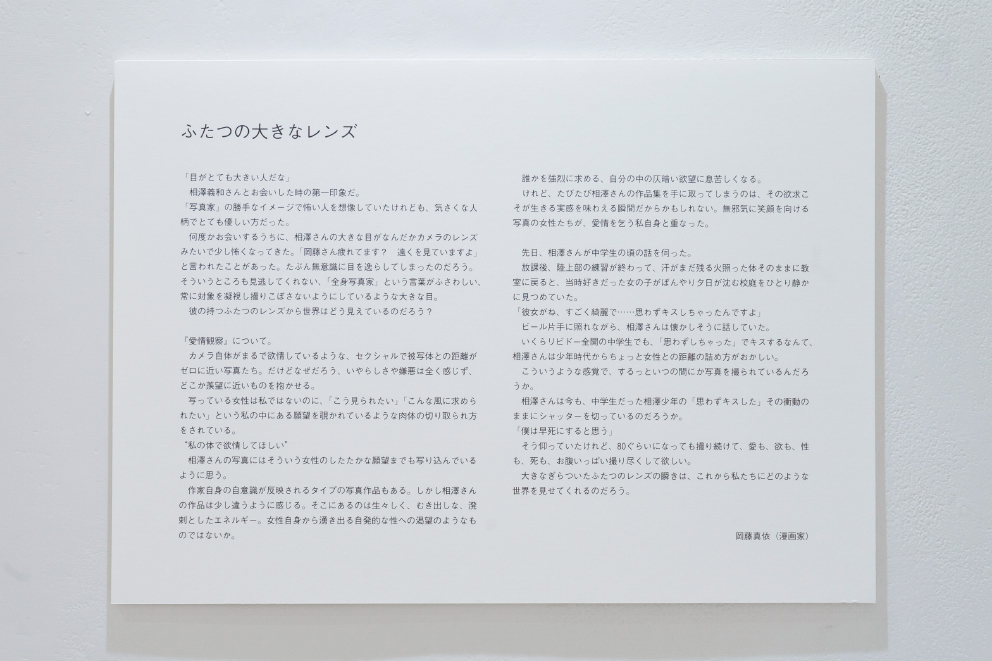 ふたつの大きなレンズ
「目がとても大きい人だな」
相澤義和さんとお会いした時の第一印象だ。
「写真家」の勝手なイメージで怖い人を想像していたけれども、気さくな人
柄でとても優しい方だった。
何度かお会いするうちに、相澤さんの大きな目がなんだかカメラのレンズ
みたいで少し怖くなってきた。「岡藤さん疲れてます？　遠くを見ていますよ」
と言われたことがあった。たぶん無意識に目を逸らしてしまったのだろう。
そういうところも見逃してくれない、「全身写真家」という言葉がふさわしい、
常に対象を凝視し撮りこぼさないようにしているような大きな目。
彼の持つふたつのレンズから世界はどう見えているのだろう？
「愛情観察」について。
カメラ自体がまるで欲情しているような、セクシャルで被写体との距離が
ゼロに近い写真たち。だけどなぜだろう、いやらしさや嫌悪は全く感じず、
どこか羨望に近いものを抱かせる。
写っている女性は私ではないのに、「こう見られたい」「こんな風に求めら
れたい」という私の中にある願望を覗かれているような肉体の切り取られ方
をされている。
“私の体で欲情してほしい”
相澤さんの写真にはそういう女性のしたたかな願望までも写り込んでいる
ように思う。
作家自身の自意識が反映されるタイプの写真作品もある。しかし相澤さん
の作品は少し違うように感じる。そこにあるのは生々しく、むき出しな、溌
剌としたエネルギー。女性自身から湧き出る自発的な性への渇望のようなも
のではないか。
誰かを強烈に求める、自分の中の仄暗い欲望に息苦しくなる。
けれど、たびたび相澤さんの作品集を手に取ってしまうのは、その欲求こ
そが生きる実感を味わえる瞬間だからかもしれない。無邪気に笑顔を向ける
写真の女性たちが、愛情を乞う私自身と重なった。
先日、相澤さんが中学生の頃の話を伺った。
放課後、陸上部の練習が終わって、汗がまだ残る火照った体そのままに教
室に戻ると、当時好きだった女の子がぼんやり夕日が沈む校庭をひとり静か
に見つめていた。
「彼女がね、すごく綺麗で……思わずキスしちゃったんですよ」
ビール片手に照れながら、相澤さんは懐かしそうに話していた。
いくらリビドー全開の中学生でも、「思わずしちゃった」でキスするなんて、
相澤さんは少年時代からちょっと女性との距離の詰め方がおかしい。
こういうような感覚で、するっといつの間にか写真を撮られているんだろ
うか。
相澤さんは今も、中学生だった相澤少年の「思わずキスした」その衝動の
ままにシャッターを切っているのだろうか。
「僕は早死にすると思う」
そう仰っていたけれど、80ぐらいになっても撮り続けて、愛も、欲も、性
も、死も、お腹いっぱい撮り尽くして欲しい。
大きなぎらついたふたつのレンズの瞬きは、これから私たちにどのような
世界を見せてくれるのだろう。
岡藤真依（漫画家）